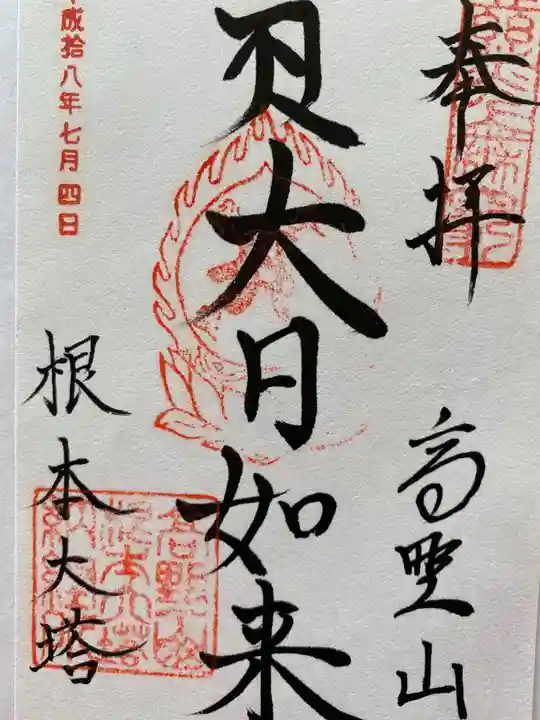 奉拝
高野山
大日如来
根本大塔
成拾八年七月四日